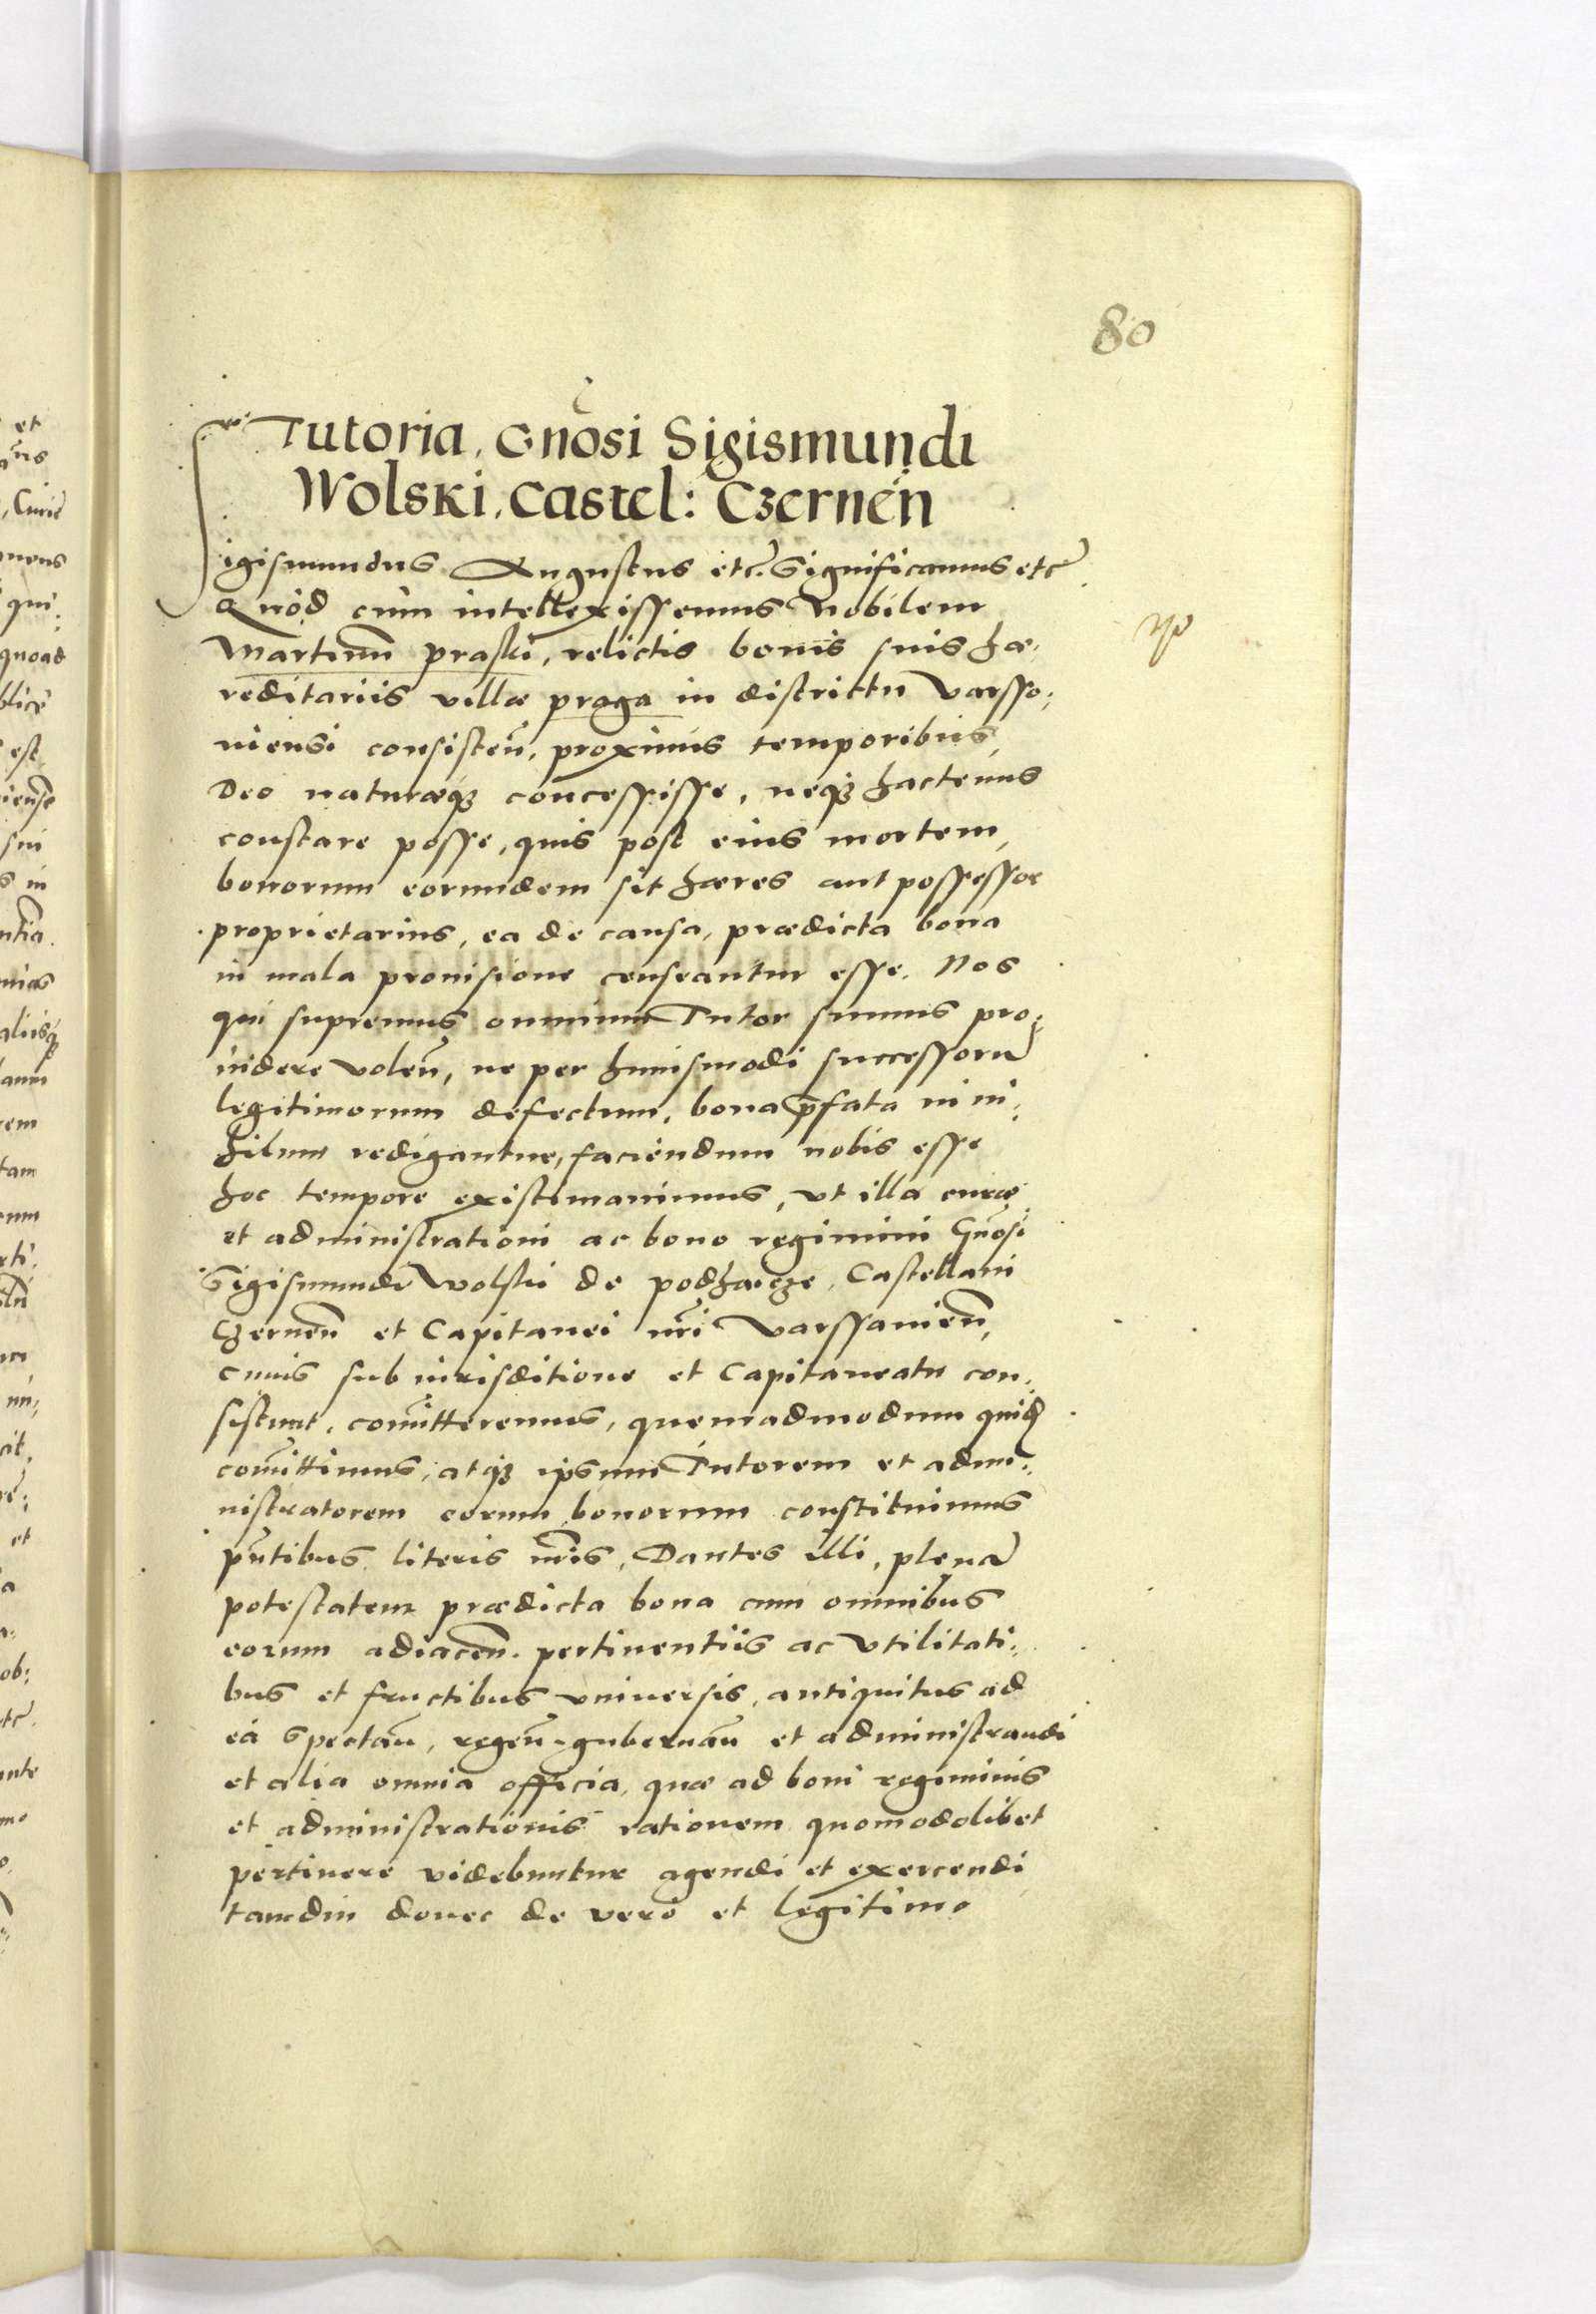 80
Tutoria, Gnosi Sigismundi
Wolski, Castel: Czernen̄
Sigismundus Augustus etc. Significamus etc
Quòd cùm intellexissemus Nobilem
Martinum praski, relictis bonis suis hæ:
reditariis villæ praga in districtu Varsso:
uiensi consisten̄, proximis temporibus,
Deo naturæq3 concessisse, neq3 hactenus
constare posse, quis post eius mortem,
bonorum eorundem sit hæres aut possessor
proprietarius, ea de causa, prædicta bona
in mala prouisione censeantur esse. Nos
qui supremus omnium Tutor sumus pro:
uidere volen̄, ne per huiusmodi successorū
legitimorum defectum, bona p̄fata in ni:
hilum redigantur, faciendum nobis esse
hoc tempore existimauimus, vt illa curæ
et administrationi ac bono regimini Gnōsi
Sigismundi Wolski de podhaicze, Castellani
Czernen̄ et Capitanei nr̄i Varssauien̄,
cuius sub iurisditione et Capitaneatu con:
sistunt, com̄itteremus, quemadmodum quid
com̄ittimus, atq3 ipsum Tutorem et admi:
nistratorem eorum bonorum constituimus
pn̄tibus literis nr̄is, Dantes illi, plenā
potestatem prædicta bona cum omnibus
eorum adiacen̄. pertinentiis ac vtilitati:
bus et fructibus vniuersis, antiquitus ad
ea spectan̄, regen̄. gubernan̄ et administrandi
et alia omnia officia, quæ ad boni regiminis
et administrationis rationem quomodolibet
pertinere videbuntur agendi et exercendi
tamdiu donec de vero et legitimo